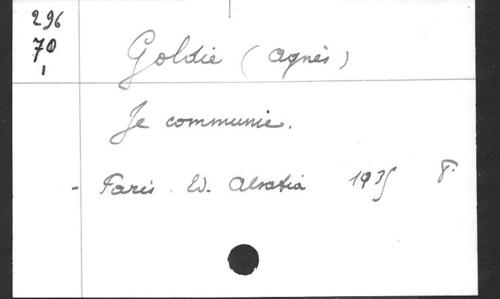 296
70
1
Goldie (Agnès)
Je communie.
- Paris. Ed. Alsatia 1935 8°